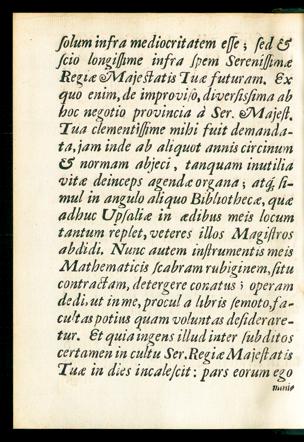 solum infra mediocritatem esse; sed &
scio longissime infra spem Serenissimæ
Regiæ Majestatis Tuæ futuram. Ex
quo enim, de improviso, diversissima ab
hoc negotio provincia à Ser. Majest.
Tua clementissime mihi fuit demanda-
ta, jam inde ab aliquot annis circinum
& normam abjeci, tanquam inutilia
vitæ deinceps agendæ organa; atq́, si-
mul in angulo aliquo Bibliothecæ, quæ
adhuc Upsaliæ in ædibus meis locum
tantum replet, veteres illos Magistros
abdidi. Nunc autem instrumentis meis
Mathematicis scabram rubiginem, situ
contractam, detergere conatus; operam
dedi, ut in me, procul a libris semoto, fa-
cultas potius quam voluntas desiderare-
tur. Et quia ingens illud inter subditos
certamen in cultu Ser. Regiæ Majestatis
Tuæ in dies incalescit: pars eorum ego